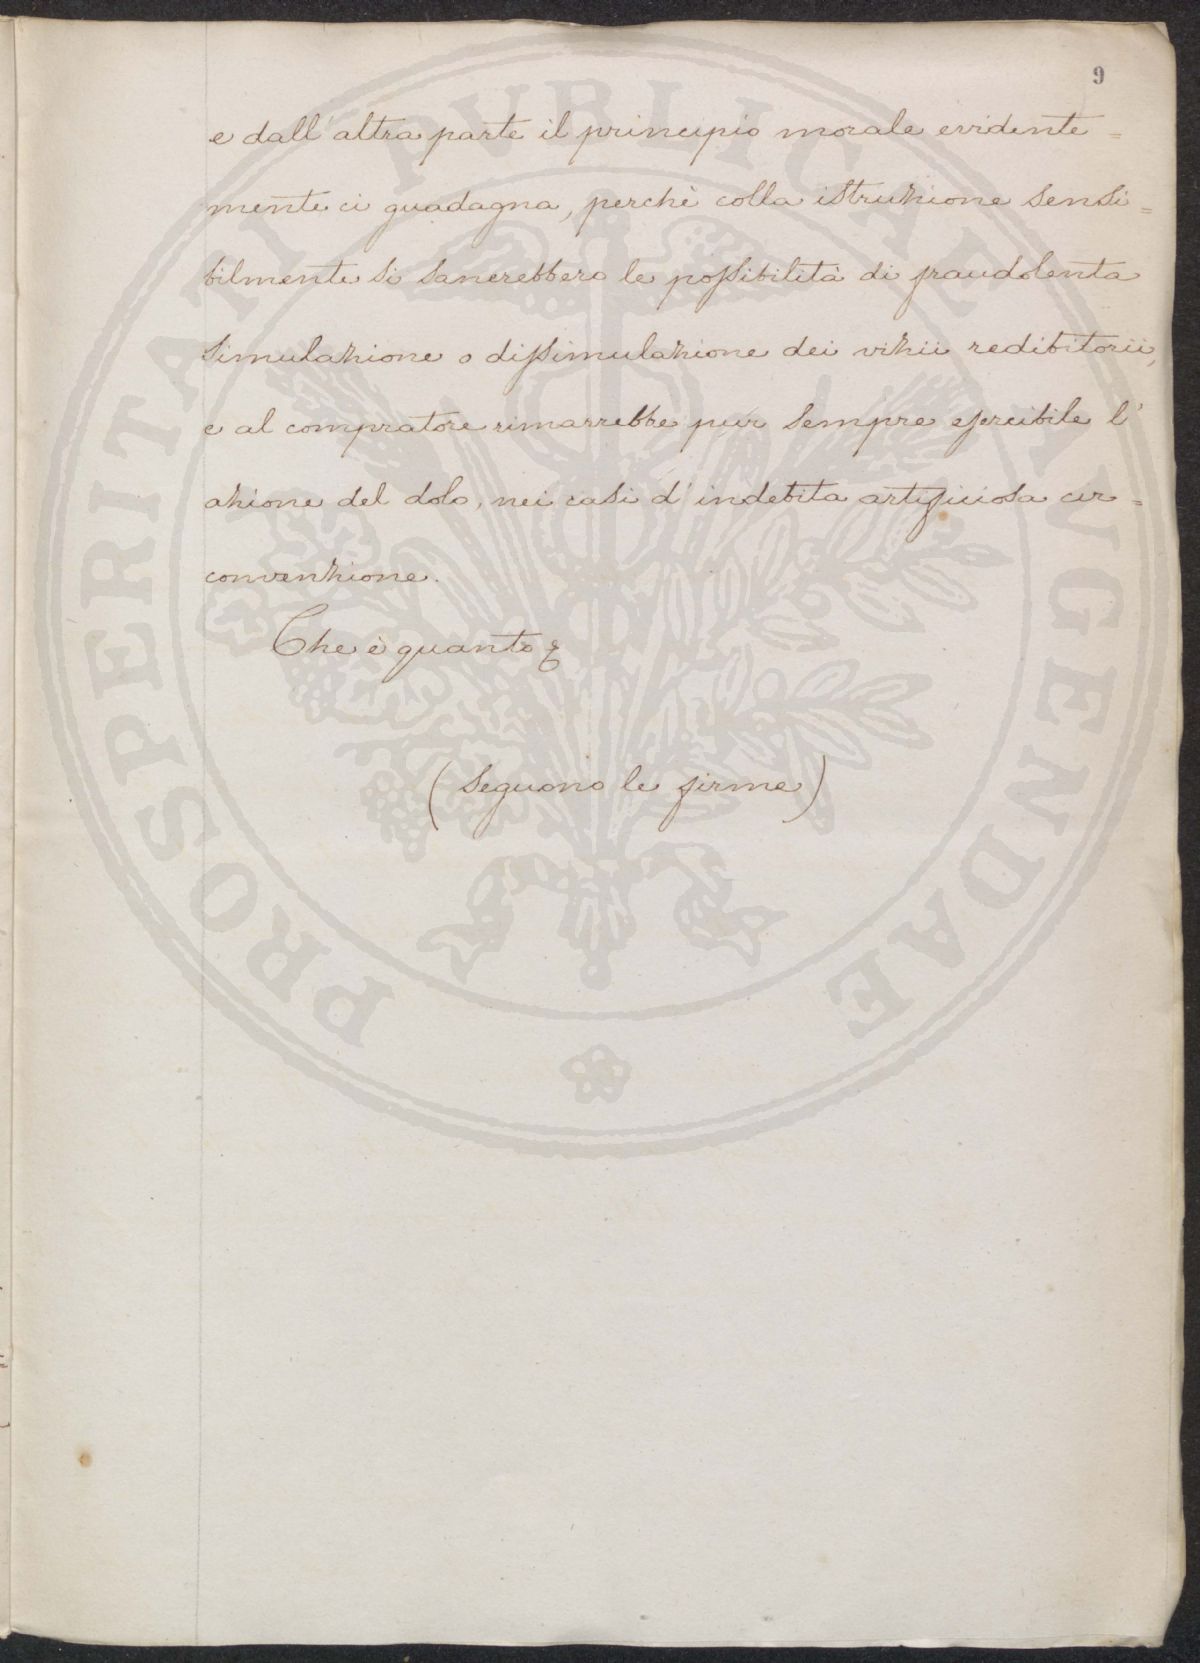 9
e dall'altra parte il principio morale evidente=
mente ci guadagna, perchè colla istruzione sensi=
bilmente si sanerebbero le possibilità di fraudolenta
simulazione o dissimulazione dei vizii redibitorii,
e al compratore rimarrebbe pur sempre esercibile l'
azione del dolo, nei casi d'indebita artificiosa cir=
convenzione.
Che è quanto
(Seguono le firme)
PROSPERITATI PVBLICAE AVGENDAE